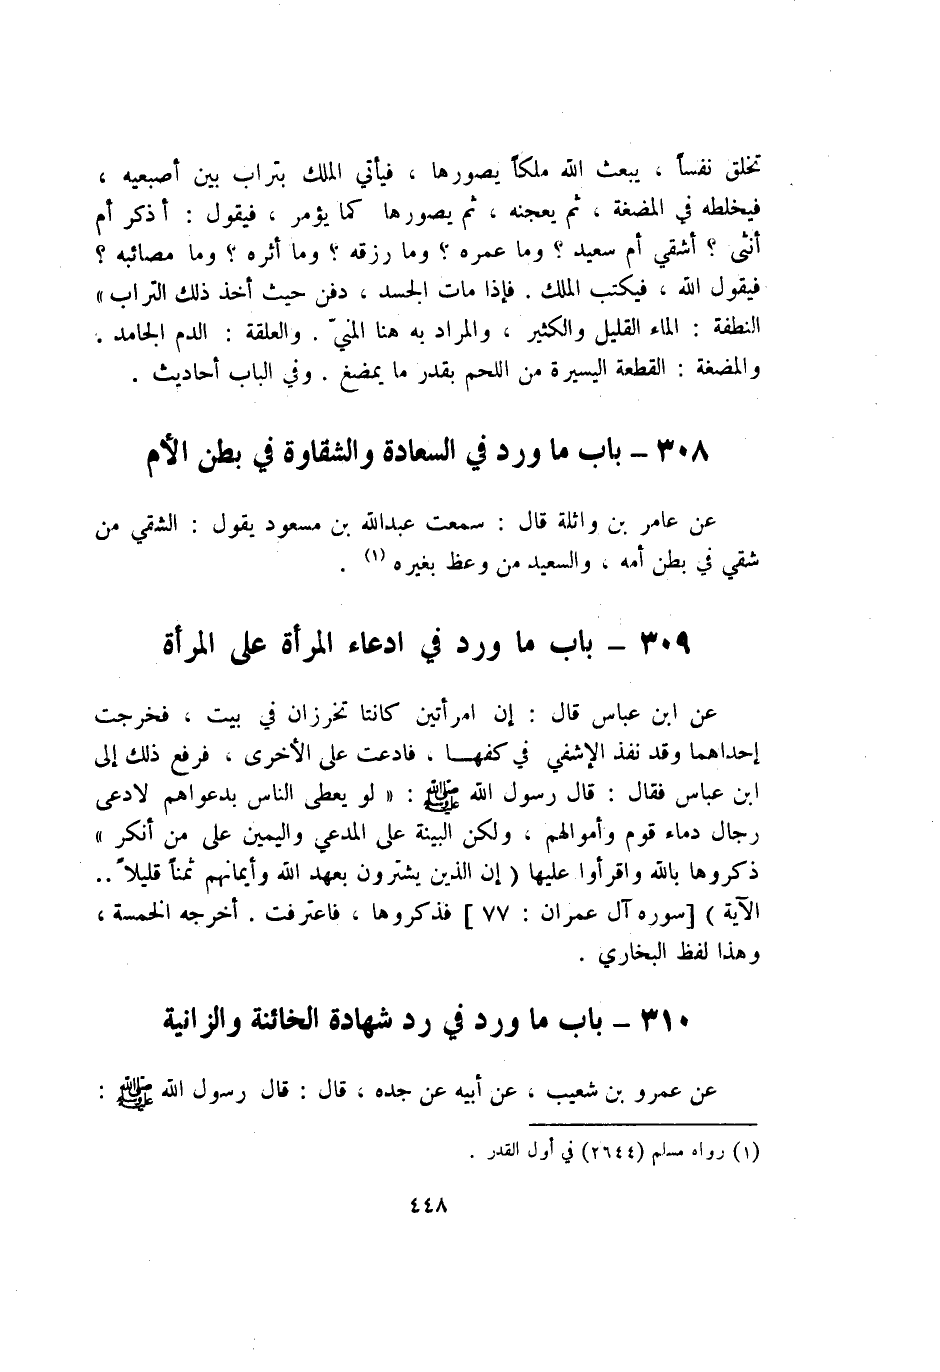 تخلق نفساً ، يبعث الله ملكاً يصورها ، فيأتي الملك بتراب بين أصبعيه ،
فيخلطه في المضغة ، ثم يعجنه ، ثم يصورها كما يؤمر ، فيقول : أذكر أم
أنثى ؟ أشقي أم سعيد ؟ وما عمره ؟ وما رزقه ؟ وما أثره ؟ وما مصائبه ؟
فيقول الله ، فيكتب الملك . فإذا مات الجسد ، دفن حيث أخذ ذلك التراب »
النطفة : الماء القليل والكثير ، والمراد به هنا المنيّ . والعلقة : الدم الجامد .
والمضغة : القطعة اليسيرة من اللحم بقدر ما يمضغ . وفي الباب أحاديث .
٣٠٨ – باب ما ورد في السعادة والشقاوة في بطن الأم
عن عامر بن واثلة قال : سمعت عبدالله بن مسعود يقول : الشقي من
شقي في بطن أمه ، والسعيد من وعظ بغيره (١) .
٣٠٩ – باب ما ورد في ادعاء المرأة على المرأة
عن ابن عباس قال : إن امرأتين كانتا تخرزان في بيت ، فخرجت
إحداهما وقد نفذ الإشفي في كفهـا ، فادعت على الأخرى ، فرفع ذلك إلى
ابن عباس فقال : قال رسول الله ﷺ : « لو يعطى الناس بدعواهم لادعى
رجال دماء قوم وأموالهم ، ولكن البينة على المدعي واليمين على من أنكر »
ذكروها بالله واقرأوا عليها ( إن الذين يشترون بعهد الله وأيمانهم ثمناً قليلاً ..
الآية ) [سوره آل عمران : ٧٧ ] فذكروها ، فاعترفت . أخرجه الخمسة ،
وهذا لفظ البخاري .
٣١٠ – باب ما ورد في رد شهادة الخائنة والزانية
عن عمرو بن شعيب ، عن أبيه عن جده ، قال : قال رسول الله ﷺ :
(١) رواه مسلم (٢٦٤٤) في أول القدر .
٤٤٨